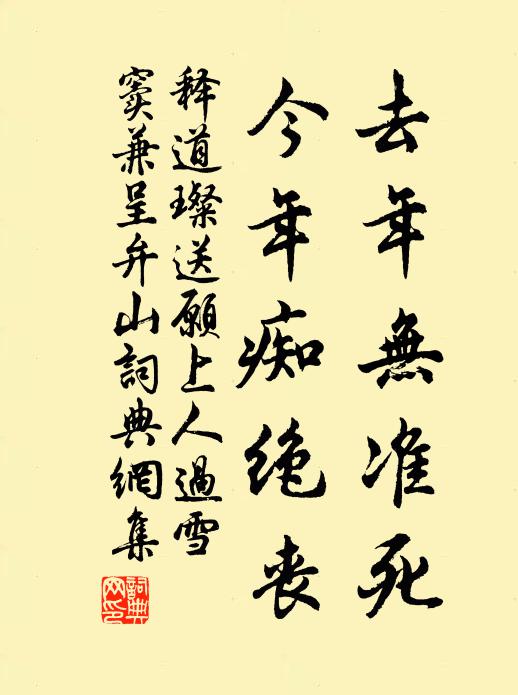 去年無准死
今年痴绝丧
释道璨送願上人過雪
窦兼呈弁山詞典網集
詞典網印